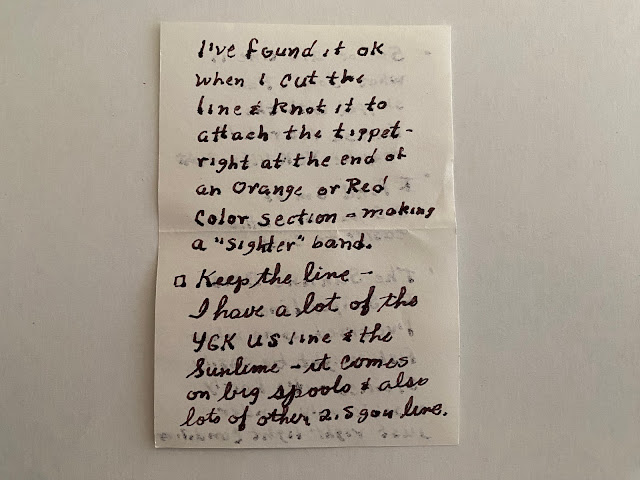 I've found it ok
when I cut the
line & knot it to
attach the tippet -
right at the end of
an Orange or Red
Color section - making
a "sighter" band.
□ Keep the line -
I have a lot of the
YGK US line & the
Sunline - it comes
on big spools & also
lots of other 2.5 gou line.